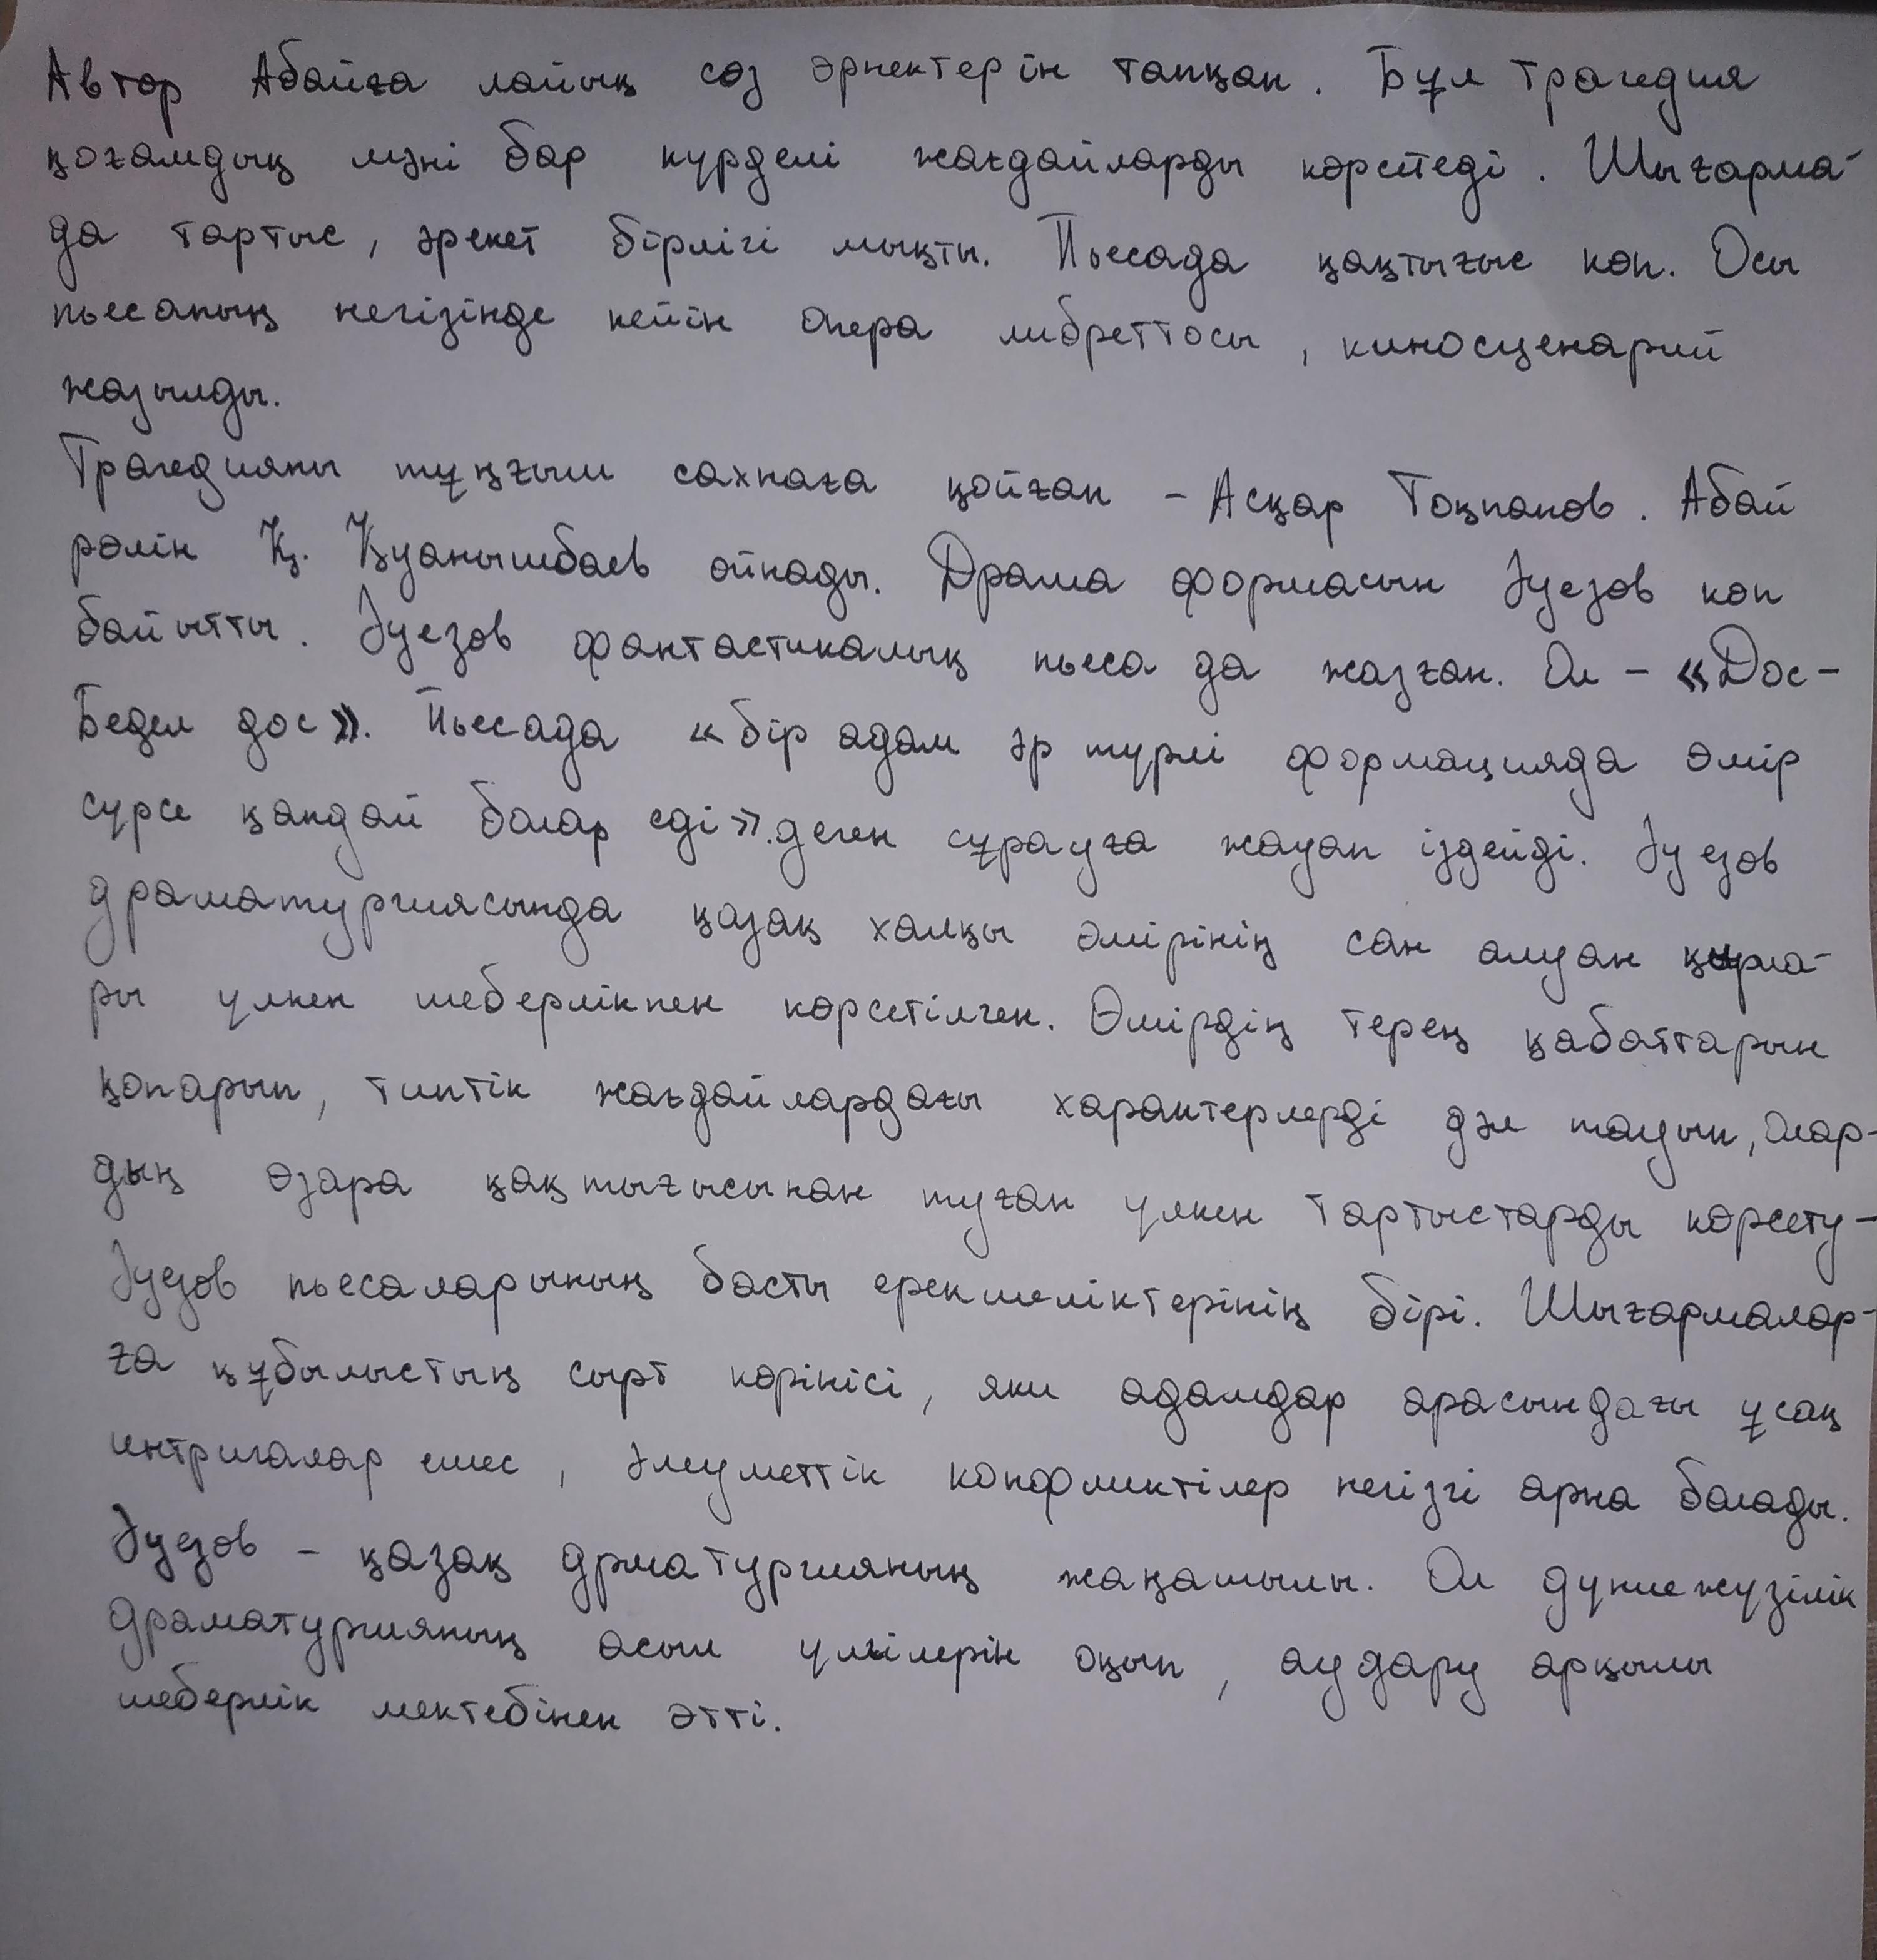 Автор Абайға лайық сөз өрнектерін тапқан. Бұл трагедия
қоғамдық мәні бар күрделі жағдайларды көрсетеді. Шығарма-
да тартыс, әрекет бірлігі мықты. Пьесада қақтығыс көп. Осы
пьесаның негізінде кейін опера либреттосы, киносценарий
жазылды.
Трагедияны тұңғыш сахнаға қойған - Асқар Тоқпанов. Абай
рөлін Қ. Қуанышбаев ойнады. Драма формасын Әуезов көп
байытты. Әуезов фантастикалық пьеса да жазған. Ол - «Дос-
Бедел дос». Пьесада «бір адам әр түрлі формацияда өмір
сүрсе қандай болар еді».деген сұрауға жауап іздейді. Әуезов
драматургиясында қазақ халқы өмірінің сан алуан қырла-
ры үлкен шеберлікпен көрсетілген. Өмірдің терең қабаттарын
қопарып, типтік жағдайлардағы характерлерді дәл тауып, олар-
дың өзара қақтығысынан туған үлкен тартыстарды көрсету-
Әуезов пьесаларының басты ерекшеліктерінің бірі. Шығармалар-
ға құбылыстың сырт көрінісі, яки адамдар арасындағы ұсақ
интригалар емес, әлеуметтік конфликтілер негізгі арна болады.
Әуезов - қазақ дрматургияның жаңашылы. Ол дүниежүзілік
драматургияның асыл үлгілерін оқып, аудару арқылы
шеберлік мектебінен өтті.